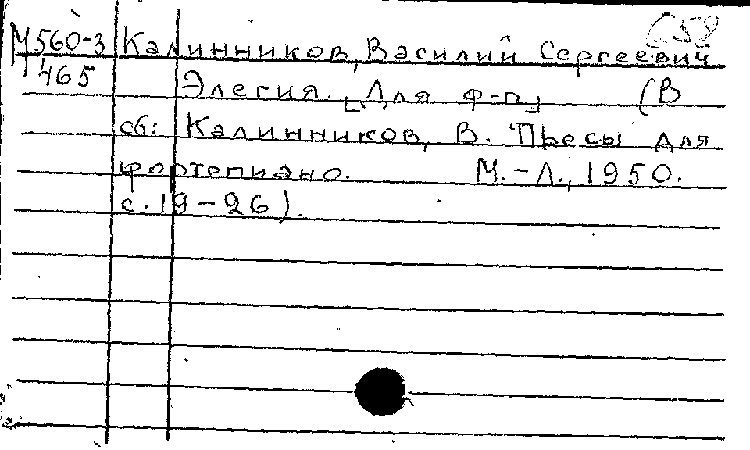 М560-3 Калинников, Василий Сергеевич
465 Элегия. [Для ф-п] (В
сб: Калинников, В. Пьесы для
фортепиано. М.-Л., 1950.
с. 19-26).